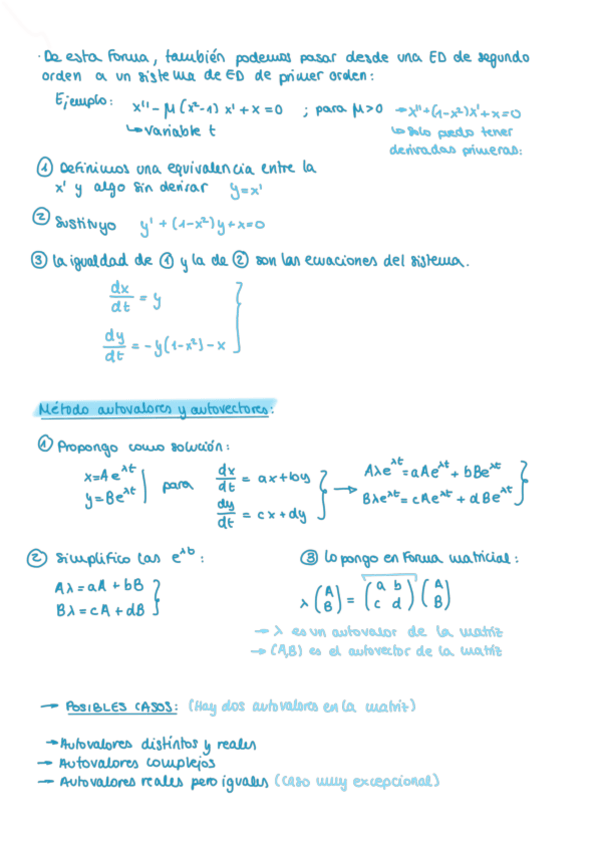 · De esta forma, también podemos pasar desde una ED de segundo
orden a un sistema de ED de primer orden:
Ejemplo: x'' - μ(x²-1) x' + x = 0 ; para μ>0 → x''+(1-x²)x'+x=0
↳ variable t
↳ solo puedo tener
derivadas primeras:
① Definimos una equivalencia entre la
x' y algo sin derivar y=x'
② Sustituyo y' + (1-x²)y+x=0
③ la igualdad de ① y la de ② son las ecuaciones del sistema.
dx/dt = y
dy/dt = -y(1-x²)-x
Método autovalores y autovectores:
① Propongo como solución:
x=Ae^λt
y=Be^λt
para
dx/dt = ax+by
dy/dt = cx+dy
→ Aλe^λt = aAe^λt + bBe^λt
Bλe^λt = cAe^λt + dBe^λt
② Simplifico las e^λb :
Aλ = aA + bB
Bλ = cA + dB
③ Lo pongo en forma matricial:
λ (A B) = (a b c d) (A B)
→ λ es un autovalor de la matriz
→ (A,B) es el autovector de la matriz
→ POSIBLES CASOS: (Hay dos autovalores en la matriz)
→ Autovalores distintos y reales
→ Autovalores complejos
→ Autovalores reales pero iguales (caso muy excepcional)